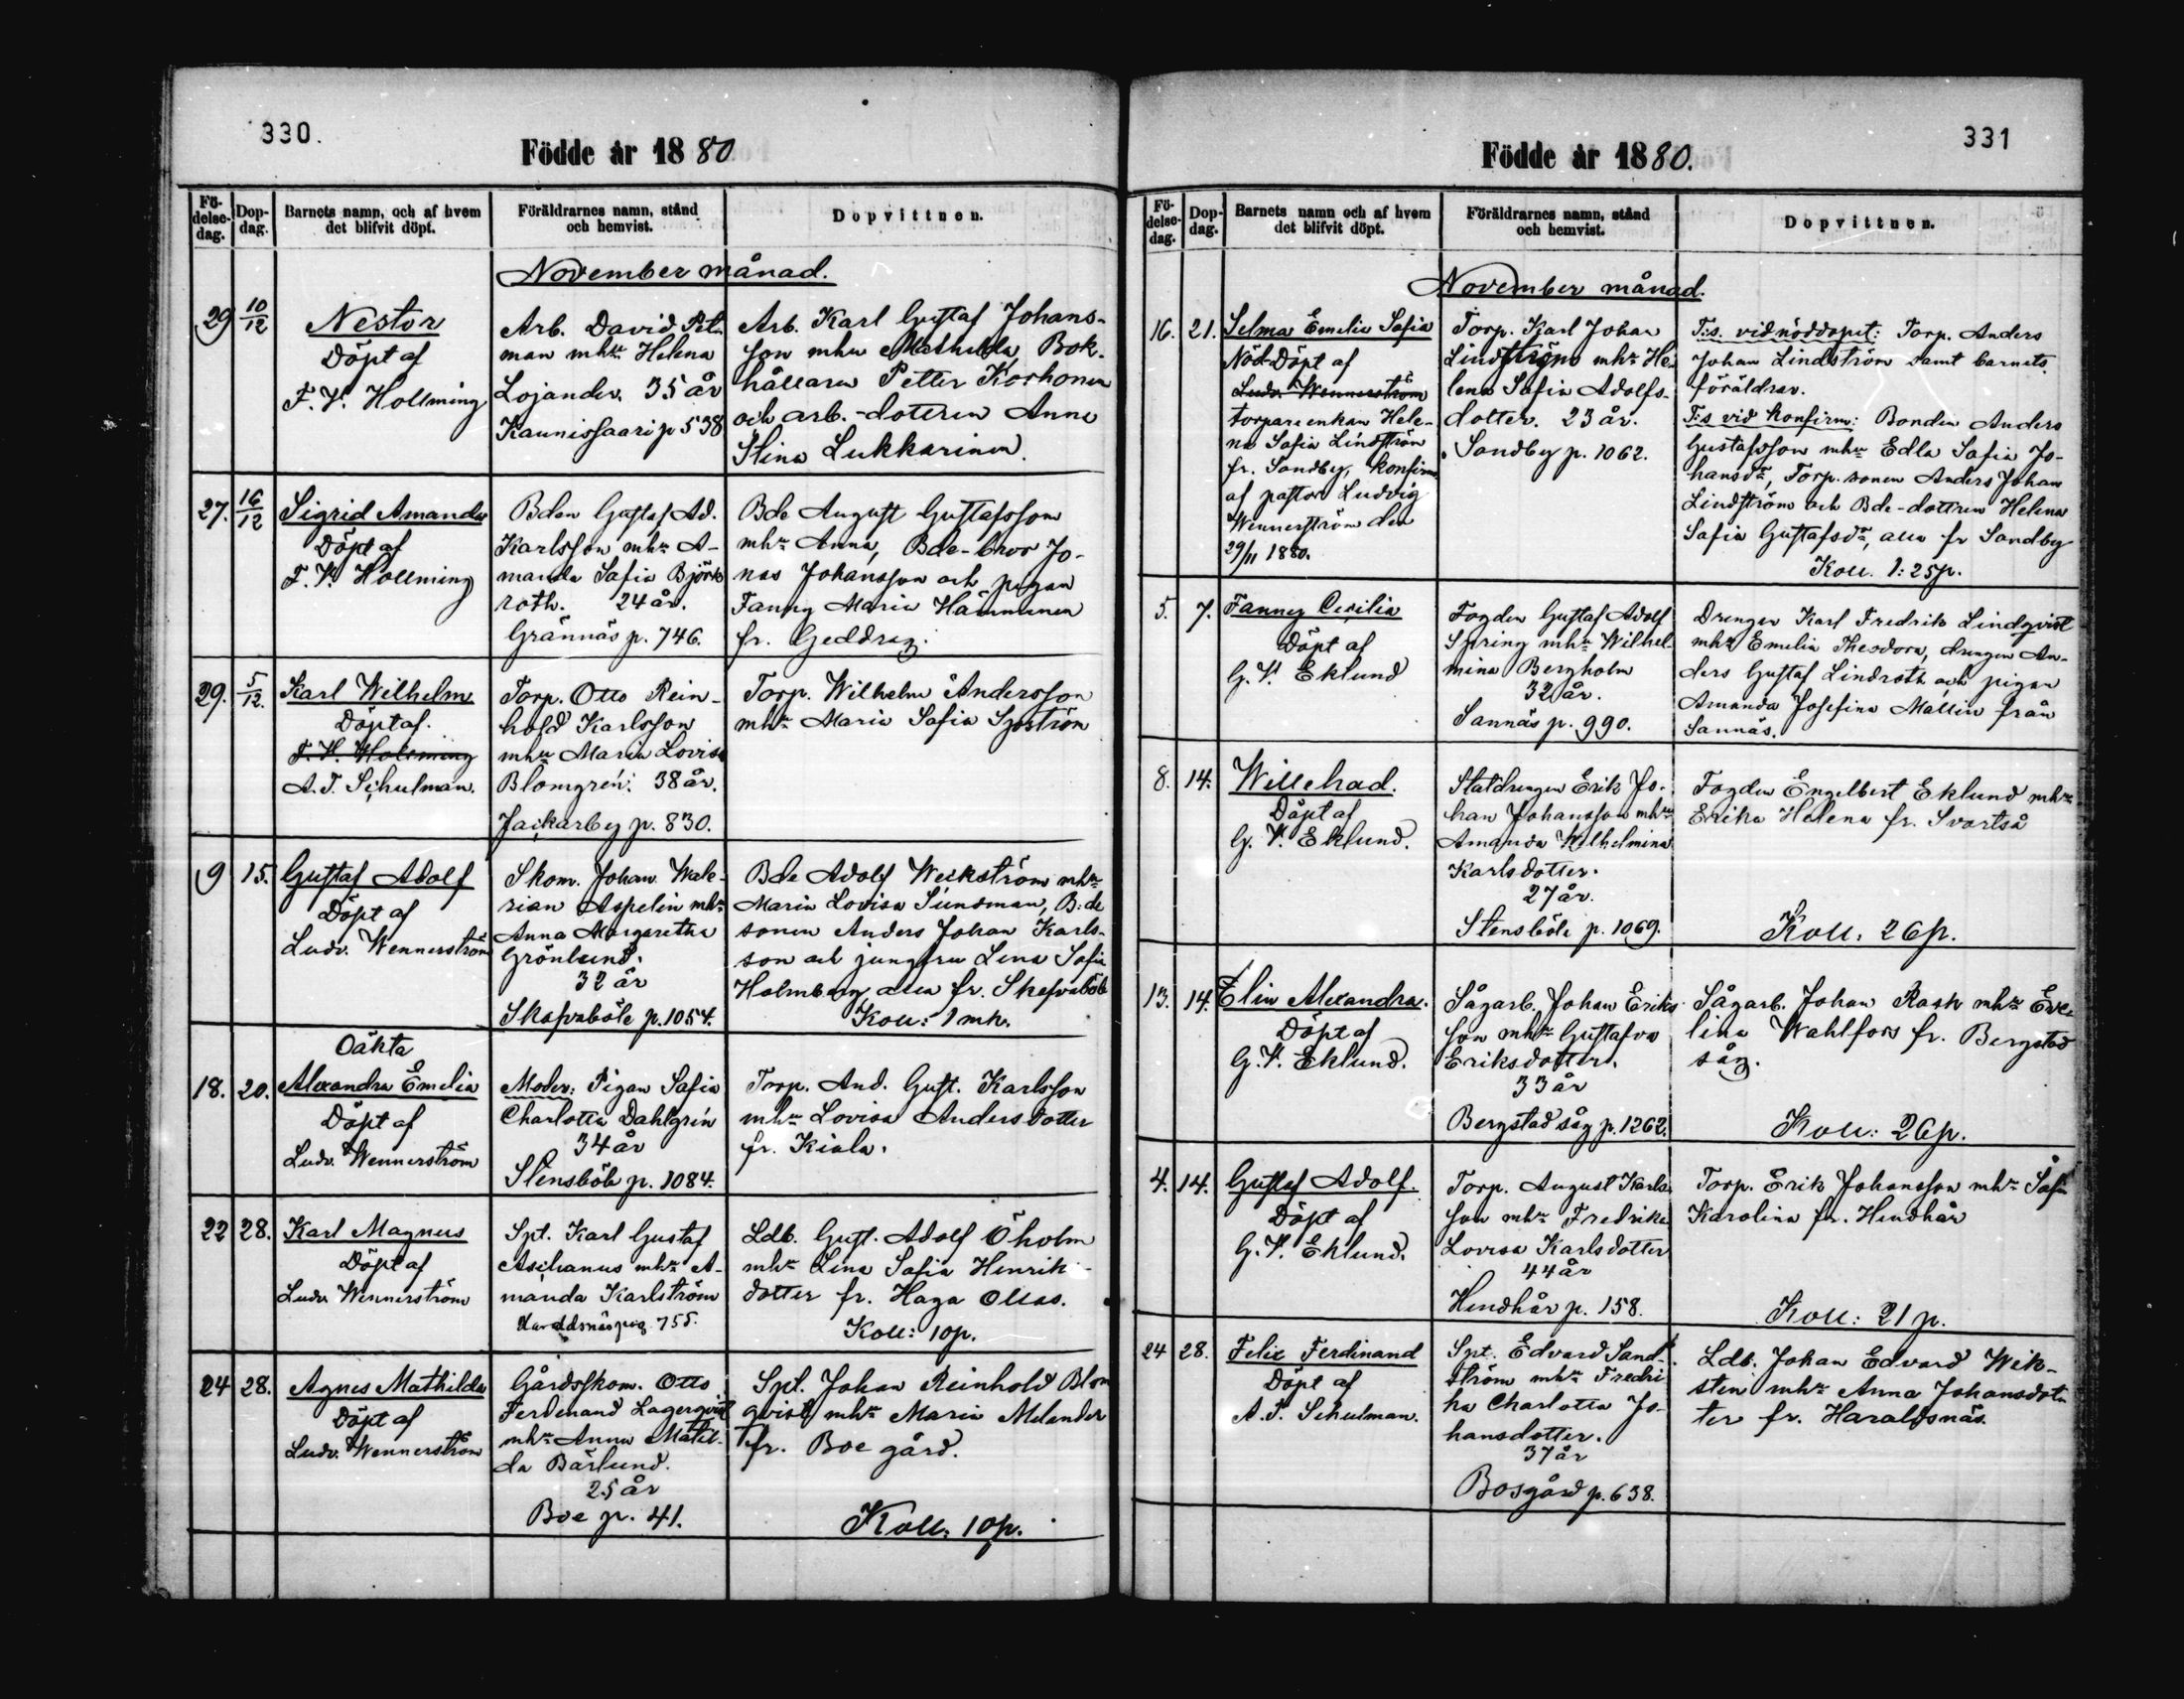 330.
Födde år 1880
Fö-
delse-
dag.
Dop-
dag.
Barnets namn, och af hvem
det blifvit döpt.
Föräldrarnes namn, stånd
och hemvist.
Dopvittnen.
November månad.
29 10/12
Nestor
Döpt af
F. V. Hollming
Arb. David Pet-
man mhu Helena
Lojander. 35 år
Kaunissaari p 538
Arb. Karl Gustaf Johans-
son mhu Mathilda, Bok-
hållaren Petter Korhonen
och arb.-dottren Anna
Stina Lukkarinen.
27. 16/12
Sigrid Amanda
Döpt af
F. V. Hollming
Bden Gustaf Ad.
Karlsson mhu A-
manda Sofia Björk
roth. 24 år.
Grännäs p. 746.
Bde August Gustafsson
mhu Anna, Bde-bror Jo-
nas Johansson och pigan
Fanny Maria Hämmenen
fr. Geddrag.
29. 5/12.
Karl Wilhelm
Döpt af.
F. V. Hollming
A. T. Schulman.
Torp. Otto Rein-
hold Karlsson
mhu Maria Lovisa
Blomgrén. 38 år.
Jackarby p. 830.
Torp. Wilhelm Andersson
mhu Maria Sofia Sjöström
9 15.
Gustaf Adolf
Döpt af
Ludv. Wennerström
Skom. Johan Wale-
rian Aspelin mhu
Anna Margaretha
Grönlund.
32 år
Skafvaböle p. 1054.
Bde Adolf Weckström mhu
Maria Lovisa Sundman, B:de
sonen Anders Johan Karls-
son och jungfrun Lena Sofia
Holmberg, alla fr. Skafvaböle
Koll: 1 mk.
Oäkta
18. 20.
Alexandra Emelia
Döpt af
Ludv. Wennerström
Moder: Pigan Sofia
Charlotta Dahlgrén
34 år
Stensböle p. 1084.
Torp. And. Gust. Karlsson
mhu Lovisa Andersdotter
fr. Kiala.
22 28.
Karl Magnus
Döpt af
Ludv Wennerström
Spt. Karl Gustaf
Ascihanus mhu A-
manda Karlström
755.
Ldb. Gust. Adolf Öholm
mhu Lena Sofia Henrik-
dotter fr. Haga Ollas.
Koll: 10 p.
24 28.
Agnes Mathilda
Döpt af
Ludv. Wennerström
Gårdsskom. Otto
Ferdinand Lagerqvist
mhu Anna Matil-
da Bärlund.
25 år
Boe p. 41.
Spt. Johan Reinhold Blom
qvist mhu Maria Melander
fr. Boe gård.
Koll: 10 p.
331
Födde år 1880.
Fö-
delse-
dag.
Dop-
dag.
Barnets namn och af hvem
det blifvit döpt.
Föräldrarnes namn, stånd
och hemvist.
Dopvittnen.
November månad.
16. 21.
Selma Emelia Sofia
Nöd-Döpt af
Ludv. Wennerström
torpareenkan Hele-
na Sofia Lindström
fr. Sandby, konfirm.
af pastor Ludvig
Wennerström den
29/11 1880.
Torp. Karl Johan
Lindström mhu He-
lena Sofia Adolfs-
dotter. 23 år.
Sandby p. 1062.
T:s. vid nöddopet: Torp. Anders
Johan Lindström samt barnets
föräldrar.
T:s vid konfirm: Bonden Anders
Gustafsson mhu Edla Sofia Jo-
hansdr, Torp. sonen Anders Johan
Lindström och Bde-dottren Helena
Sofia Gustafsdr, alla fr Sandby
Koll. 1:25 p.
5. 7.
Fanny Cecilia
Döpt af
G. V. Eklund
Fogden Gustaf Adolf
Spring mhu Wilhel-
mina Bergholm
32 år.
Sannäs p. 990.
Drengen Karl Fredrik Lindqvist
mhu Emelia Theodora, drengen An-
ders Gustaf Lindroth och pigan
Amanda Josefina Mallin från
Sannäs.
8. 14.
Willehad.
Döpt af
G. V. Eklund.
Statdrengen Erik Jo-
han Johansson mhu
Amanda Wilhelmina
Karlsdotter.
27 år.
Stensböle p. 1069.
Fogden Engelbert Eklund mhu
Erika Helena fr. Svartså
Koll: 26 p.
13. 14.
Elin Alexandra.
Döpt af
G. V. Eklund.
Sågarb. Johan Eriks-
son mhu Gustafva
Eriksdotter.
33 år
Bergstad såg p. 1262.
Sågarb. Johan Rask mhu Eve-
lina Wahlfors fr. Bergstad
såg.
Koll: 26 p.
4. 14.
Gustaf Adolf.
Döpt af
G. V. Eklund.
Torp. August Karls-
son mhu Fredrika
Lovisa Karlsdotter
44 år
Hindhår p. 158.
Torp. Erik Johansson mhu Sofia
Karolina fr. Hindhår
Koll: 21 p.
24 28.
Felix Ferdinand
Döpt af
A. T. Schulman.
Spt. Edvard Sand-
ström mhu Fredri
ka Charlotta Jo-
hansdotter.
37 år
Bosgård p. 638.
Ldb. Johan Edvard Wik-
sten mhu Anna Johansdot-
ter fr. Haraldsnäs.